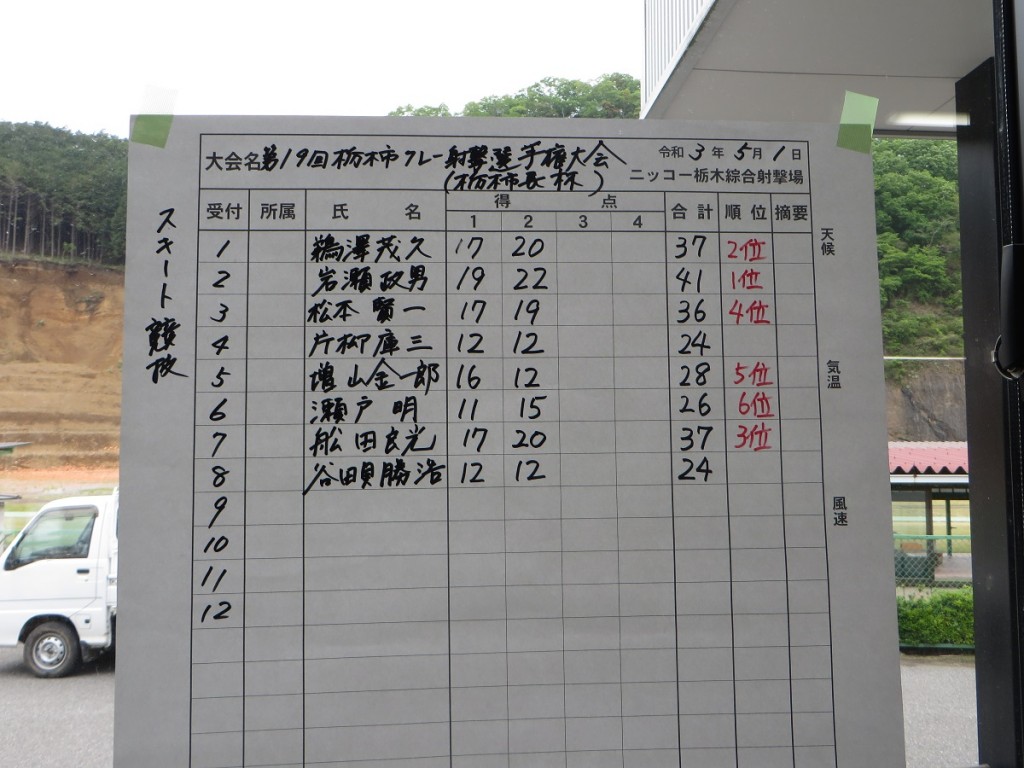 大会名 第19回栃木市クレー射撃選手権大会 令和3年5月1日
(栃木市長杯) ニッコー栃木綜合射撃場
スキート競技
受付 所属 氏名 得点 合計 順位 摘要
1 2 3 4
1 鵜澤茂久 17 20 37 2位
2 岩瀬政男 19 22 41 1位
3 松本賢一 17 19 36 4位
4 片柳庫三 12 12 24
5 増山金一郎 16 12 28 5位
6 瀬戸明 11 15 26 6位
7 船田良光 17 20 37 3位
8 谷田貝勝浩 12 12 24
9
10
11
12
天候
気温
風速